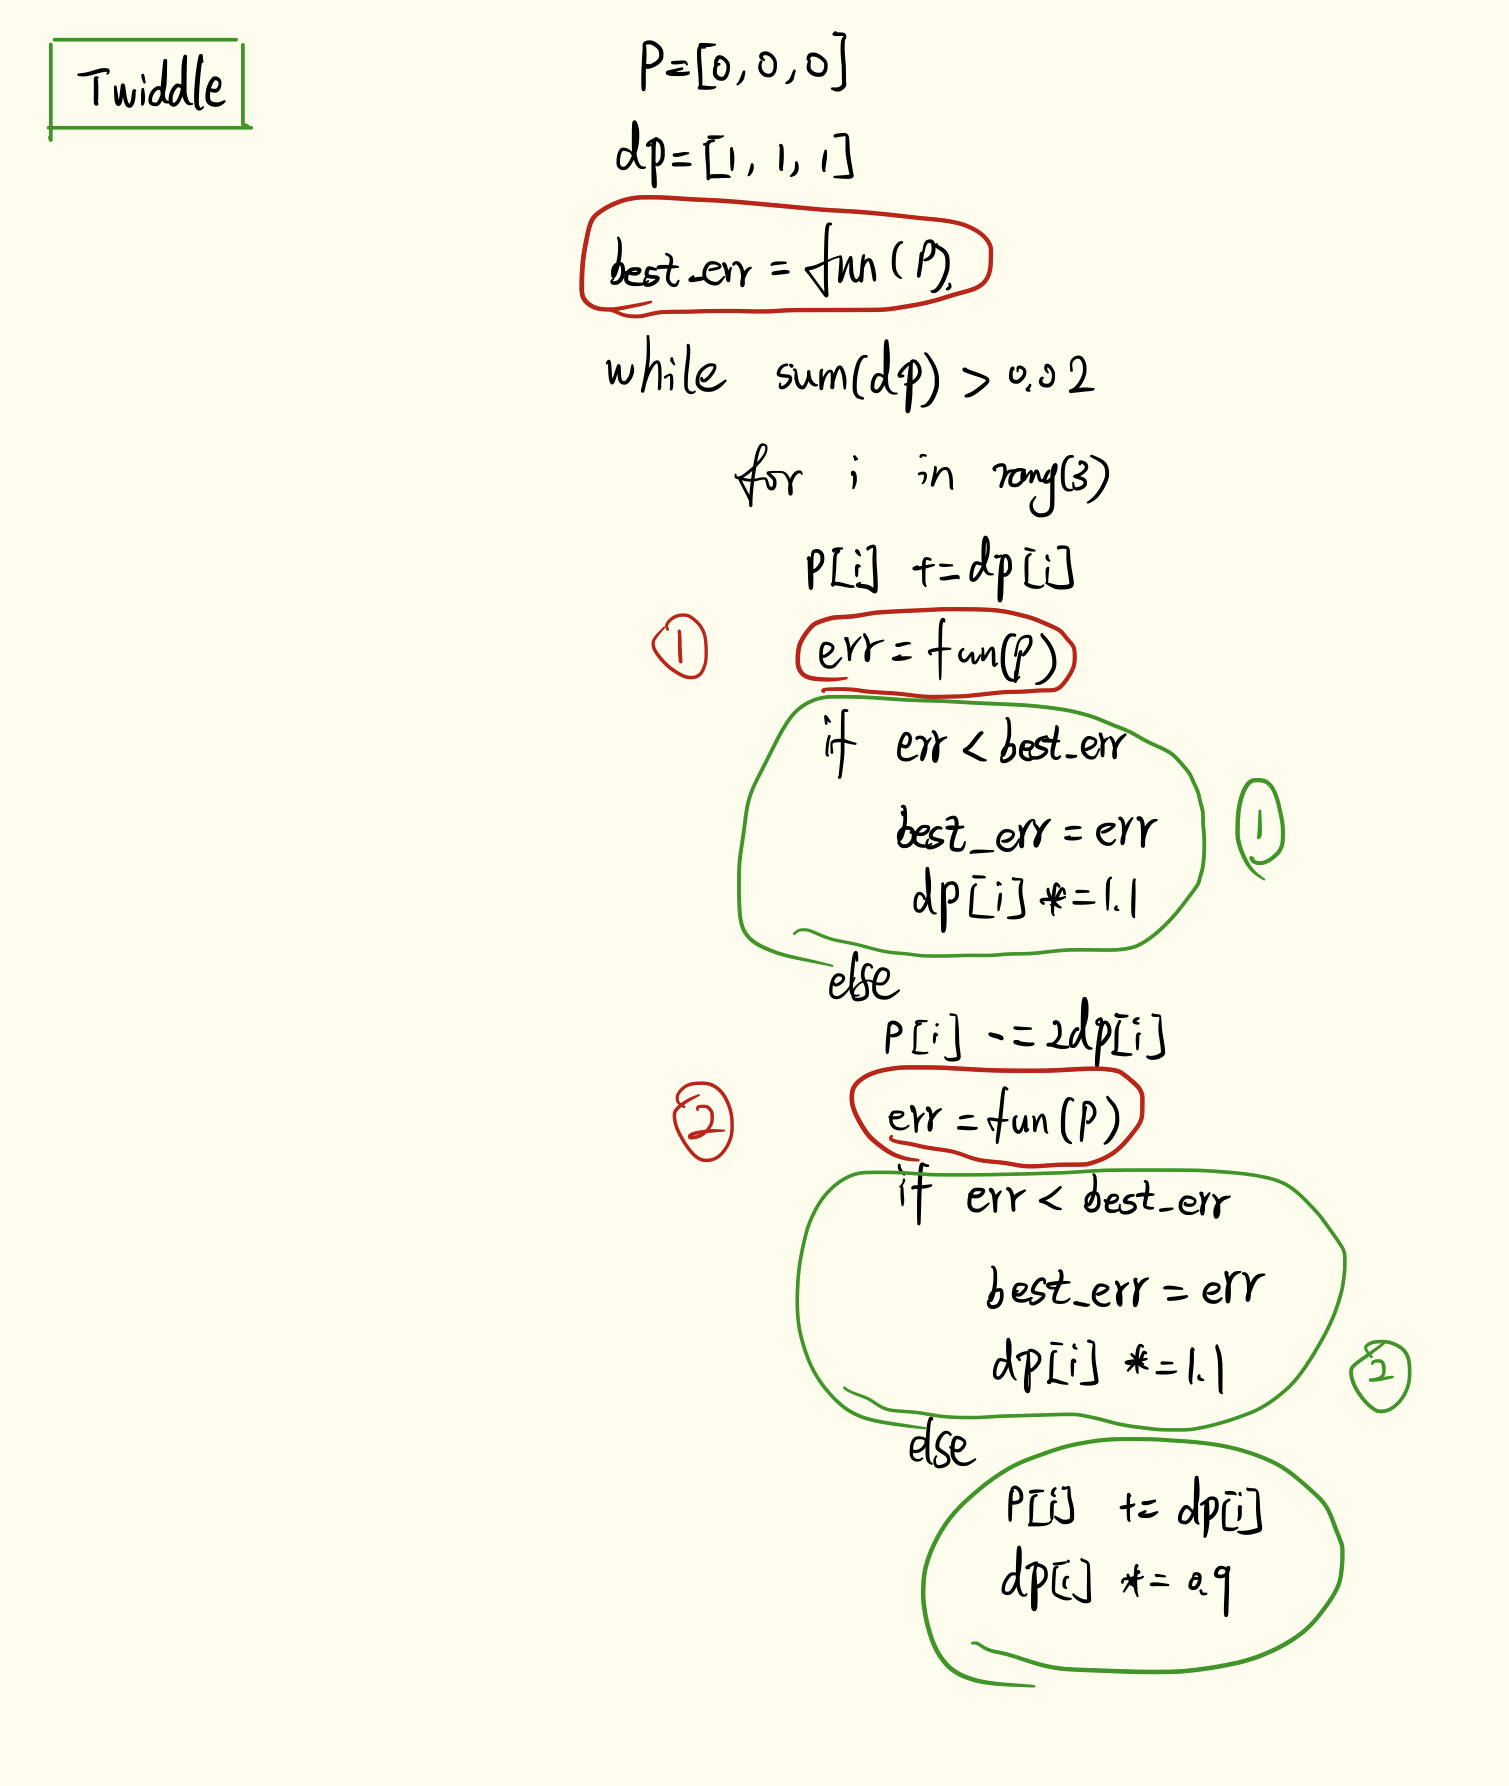 Twiddle
P=[0,0,0]
dp=[1,1,1]
best_err = fun(P).
while sum(dp) > 0.02
for i in rang(3)
P[i] += dp[i]
① err = fun(P)
if err < best_err
①
best_err = err
dp[i] *= 1.1
else
P[i] -= 2dp[i]
② err = fun(P)
if err < best_err
best_err = err
dp[i] *= 1.1
②
else
P[i] += dp[i]
dp[i] *= 0.9